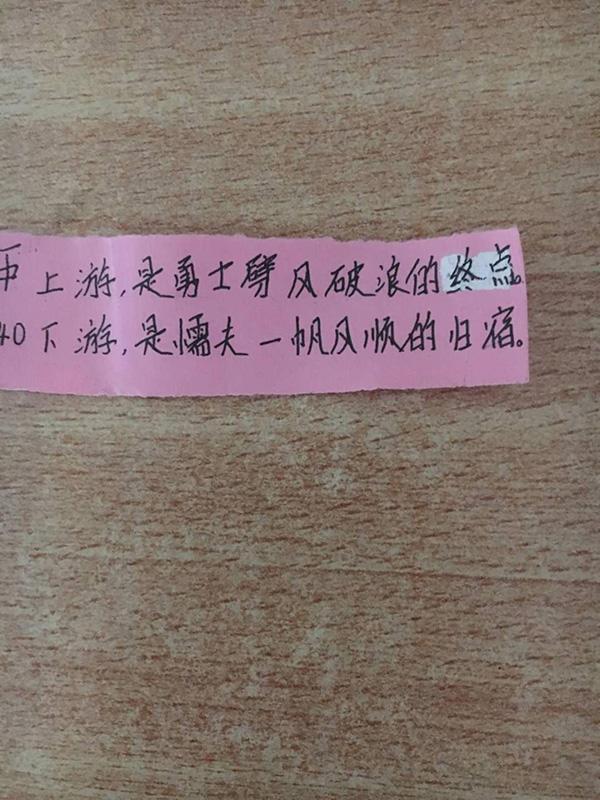 上游,是勇士劈风破浪的终点。
下游,是懦夫一帆风顺的归宿。